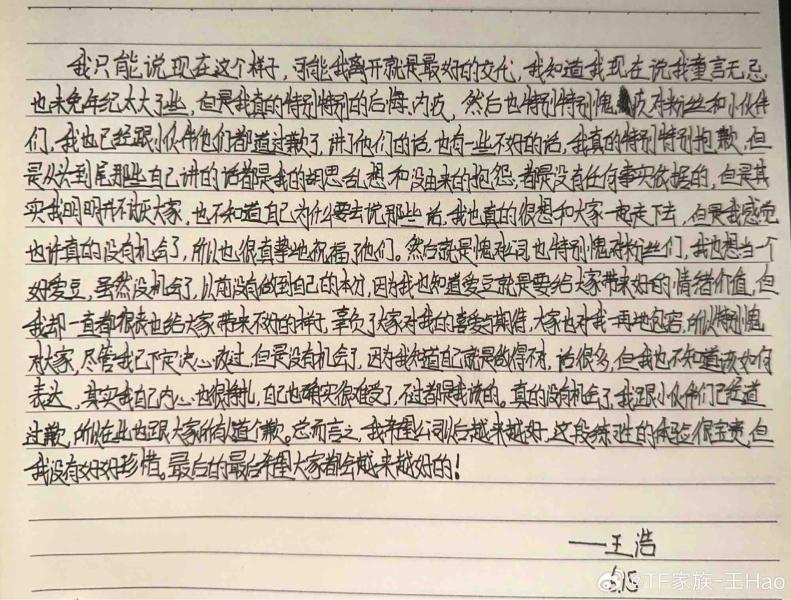 我只能说现在这个样子，可能我离开就是最好的交代，我知道我现在说我童言无忌
也未免年纪太大了些，但是我真的特别特别的后悔、内疚，然后也特别特别愧疚对粉丝和小伙伴
们，我也已经跟小伙伴他们都道过歉了，讲了他们的话，也有一些不好的话，我真的特别特别抱歉，但
是从头到尾那些自己讲的话都是我的胡思乱想和没由来的抱怨，都是没有任何事实依据的，但是其
实我明明并不讨厌大家，也不知道自己为什么要去说那些话，我也真的很想和大家一起走下去，但是我感觉
也许真的没有机会了，所以也很真挚地祝福了他们。然后就是愧对公司，也特别愧对粉丝们，我也想当一个
好爱豆，虽然没机会了，以前没有做到自己的本分，因为我也知道爱豆就是要给大家带来好的情绪价值，但
我却一直都很丧也给大家带来不好的样子，辜负了大家对我的喜爱与期待，大家也对我一再地包容，所以特别愧
对大家，尽管我已下定决心改过，但是没有机会了，因为我知道自己就是做得不对，话很多，但我也不知道该如何
表达，其实我自己内心也很挣扎，自己也确实很难受了，不过都是我该的。真的没有机会了，我跟小伙伴们已经道
过歉，所以在此也跟大家所有人道个歉。总而言之，我希望公司以后越来越好，这段练习生的体验很宝贵，但
我没有好好珍惜。最后的最后希望大家都会越来越好的！
——王浩
5.15
@TF家族-王Hao